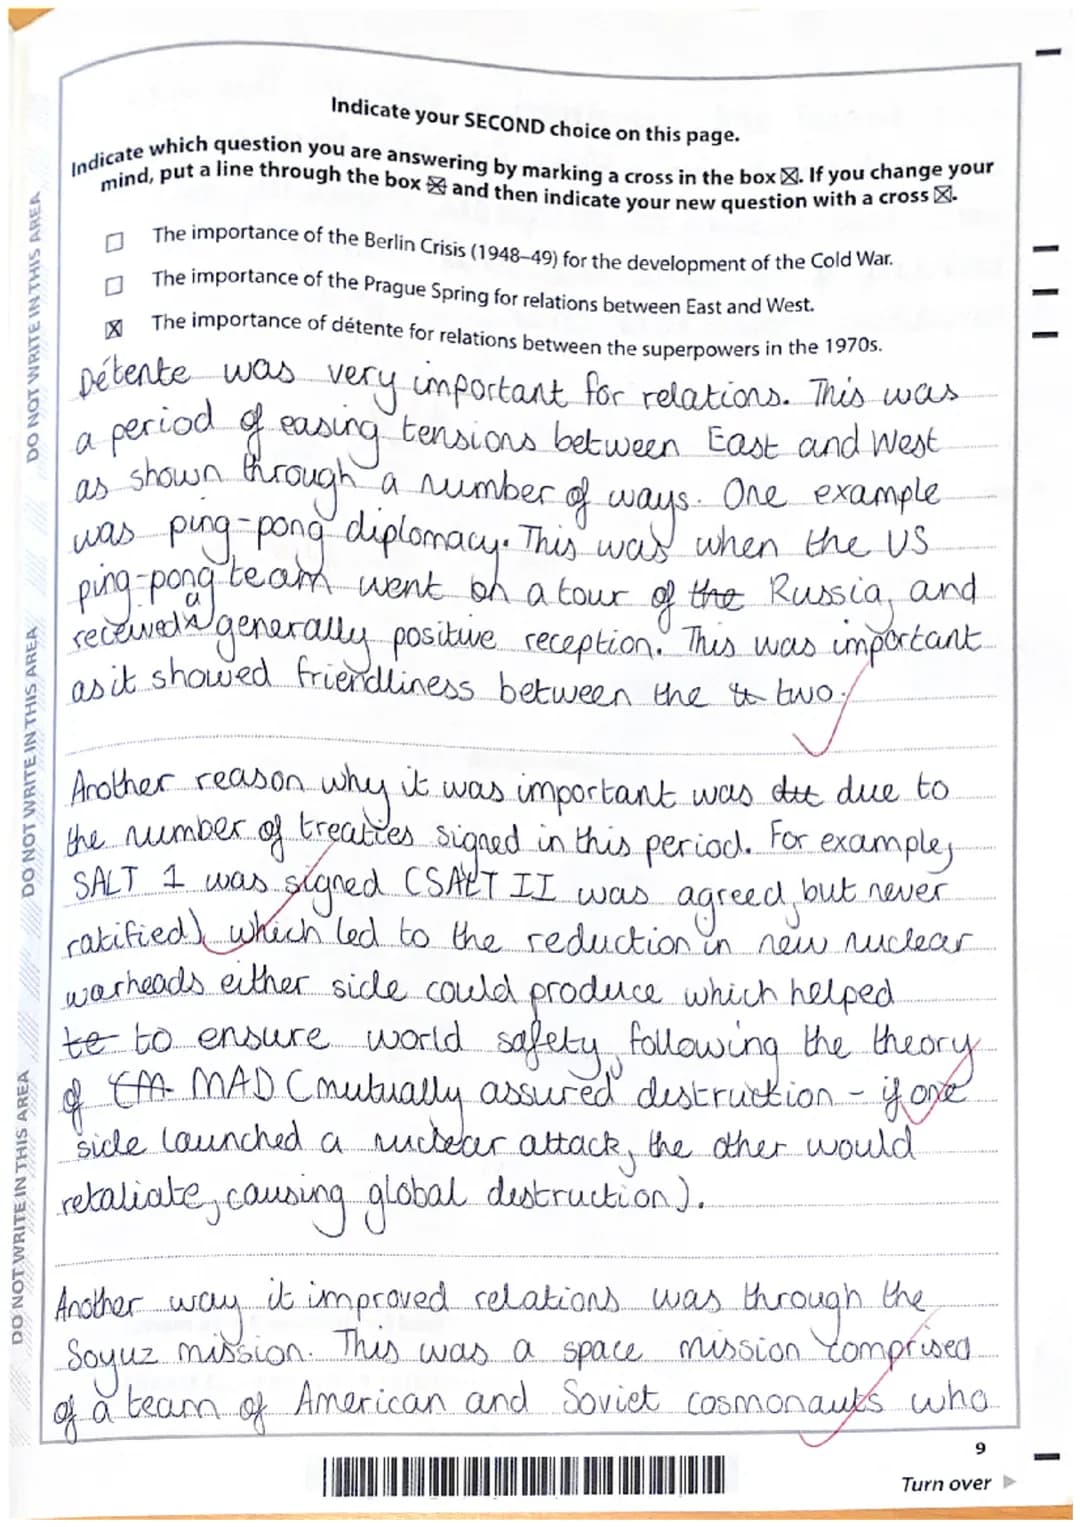 Indicate your SECOND choice on this page.
Indicate which question you are answering by marking a cross in the box ☒. If you change your
mind, put a line through the box ☒ and then indicate your new question with a cross ☒.
The importance of the Berlin Crisis (1948–49) for the development of the Cold War.
The importance of the Prague Spring for relations between East and West.
☒ The importance of détente for relations between the superpowers in the 1970s.
Détente was very important for relations. This was
a period of easing tensions between East and West
as shown through a number of ways. One example
was ping-pong diplomacy. This was when the US
ping-pong team went on a tour of the Russia, and
received a generally positive reception. This was important
as it showed friendliness between the two.
Another reason why it was important was due to
the number of treaties signed in this period. For example,
SALT 1 was signed (SALT II was agreed, but never
ratified), which led to the reduction in new nuclear
warheads either side could produce which helped
to to ensure world safety, following the theory
of MAD (mutually assured destruction - if one
side launched a nuclear attack, the other would
retaliate, causing global destruction).
Another way it improved relations was through the
Soyuz mission. This was a space mission comprised
of a team of American and Soviet cosmonauts who
9
Turn over
DO NOT WRITE IN THIS AREA
DO NOT WRITE IN THIS AREA
DO NOT WRITE IN THIS AREA